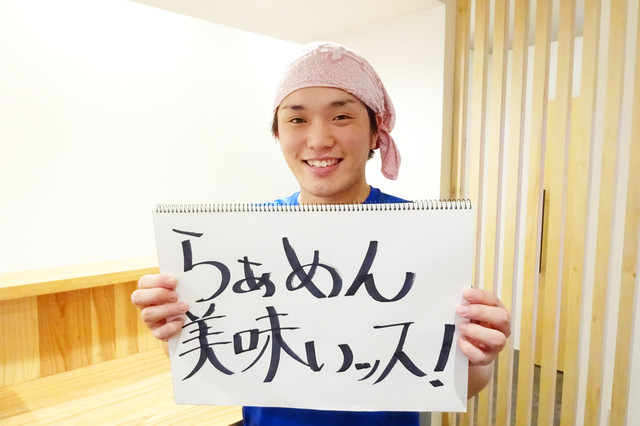 らぁめん
美味いッス!